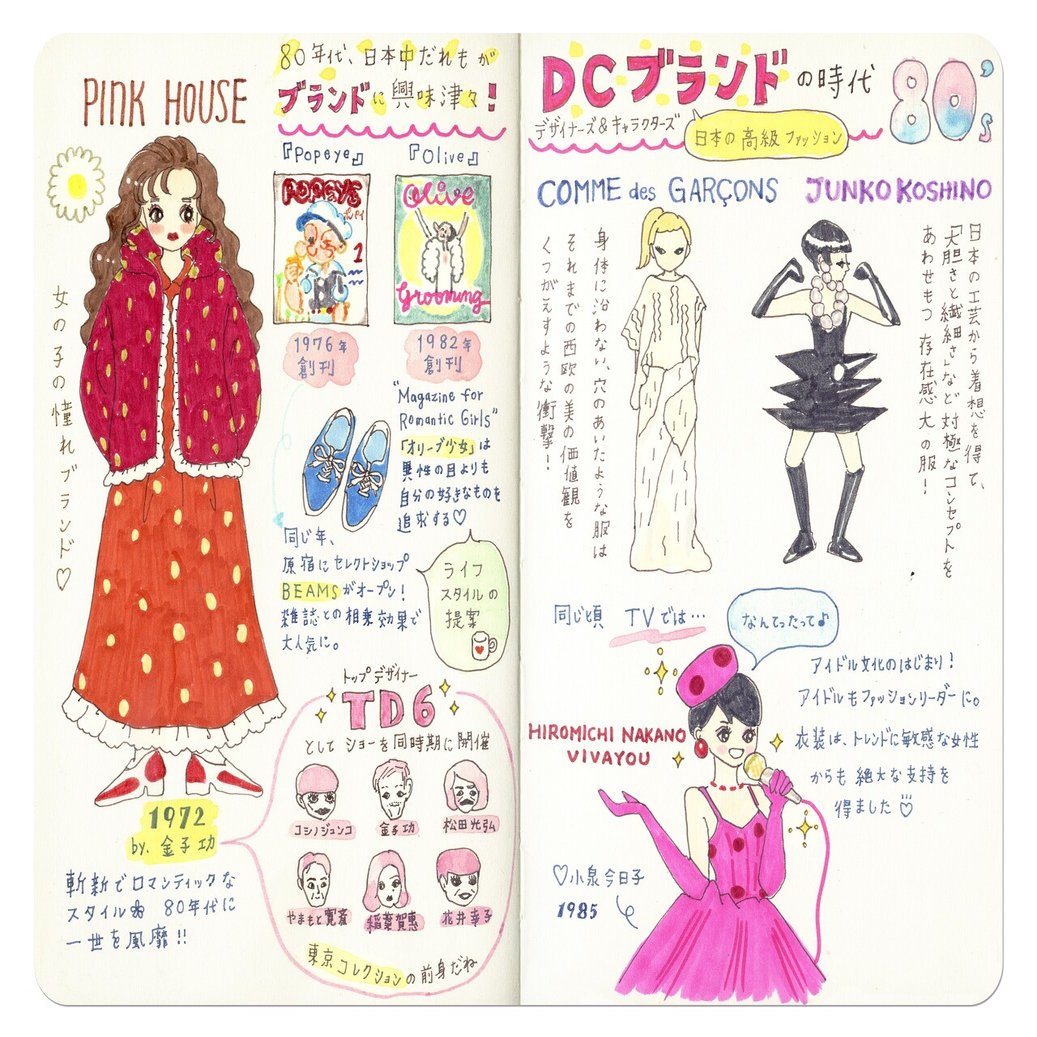 PINK HOUSE
女の子の憧れブランド♡
1972
by. 金子功
斬新でロマンティックな
スタイル✽ 80年代に
一世を風靡!!
80年代、日本中だれもが
ブランドに興味津々!
『Popeye』
『Olive』
POPEYE
1
Olive
Grooming
1976年
創刊
1982年
創刊
"Magazine for
Romantic Girls"
「オリーブ少女」は
異性の目よりも
自分の好きなものを
追求する♡
同じ年、
原宿にセレクトショップ
BEAMSがオープン!
雑誌との相乗効果で
大人気に。
ライフ
スタイルの
提案
トップデザイナー
TD6
として ショーを同時期に開催
コシノジュンコ
金子功
松田光弘
やまもと寛斎
稲葉賀惠
花井幸子
東京コレクションの前身だね
DCブランドの時代
80's
デザイナーズ&キャラクターズ
日本の高級ファッション
COMME des GARÇONS
身体に沿わない、穴のあいたような服は
それまでの西欧の美の価値観を
くつがえすような衝撃!
JUNKO KOSHINO
日本の工芸から着想を得て、
「大胆さと繊細さ」など対極なコンセプトを
あわせもつ 存在感大の服!
同じ頃 TVでは…
なんてったって♪
アイドル文化のはじまり!
アイドルもファッションリーダーに。
衣装は、トレンドに敏感な女性
からも絶大な支持を
得ました
HIROMICHI NAKANO
VIVAYOU
♡小泉今日子
1985